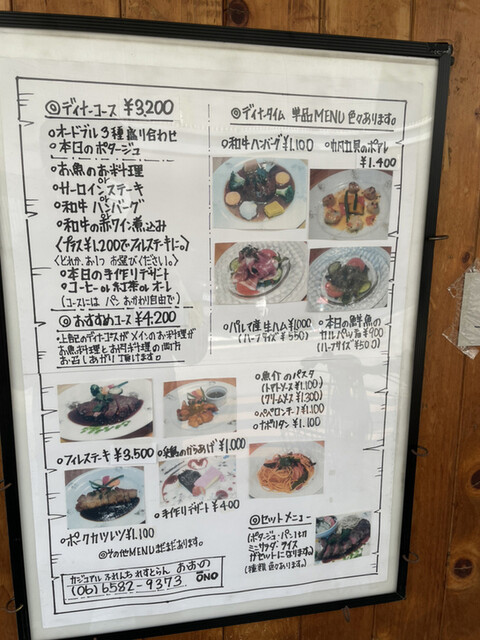 ◎ディナーコース ¥3,200
○オードブル3種盛り合わせ
○本日のポタージュ
○お魚のお料理
or
○サーロインステーキ
or
○和牛ハンバーグ
or
○和牛の赤ワイン煮込み
(プラス¥1,200でフィレステーキに。)
(どれか、お1つお選びくださいね。)
○本日の手作りデザート
○コーヒーor紅茶orオーレ
(コースにはパンおかわり自由で)
◎おすすめコース ¥4,200
上記のディナーコースがメインのお料理が
お魚料理とお肉料理の両方
お召しあがり頂けます。
◎ディナータイム 単品MENU 色々あります。
○和牛ハンバーグ ¥1,100
○帆立貝のポアレ
¥1.400
○パルマ産生ハム ¥1000
(ハーフサイズ ¥550)
○本日の鮮魚の
カルパッチョ ¥900
(ハーフサイズ ¥500)
○魚介のパスタ
(トマトソース ¥1.100)
(クリームソース ¥1.300)
○ペペロンチーノ ¥1.100
○ナポリタン ¥1.100
○フィレステーキ ¥3,500
のからあげ ¥1.000
○ポークカツレツ ¥1.100
○手作りデザート ¥400
◎その他MENUまだまだあります。
◎セットメニュー
(ポタージュ・パン1切
ミニサラダ・ライス
がセットになります。)
(種類色々あります。)
カジュアル ふれんち れすとらん おおの
(06)6582-9373 ONO